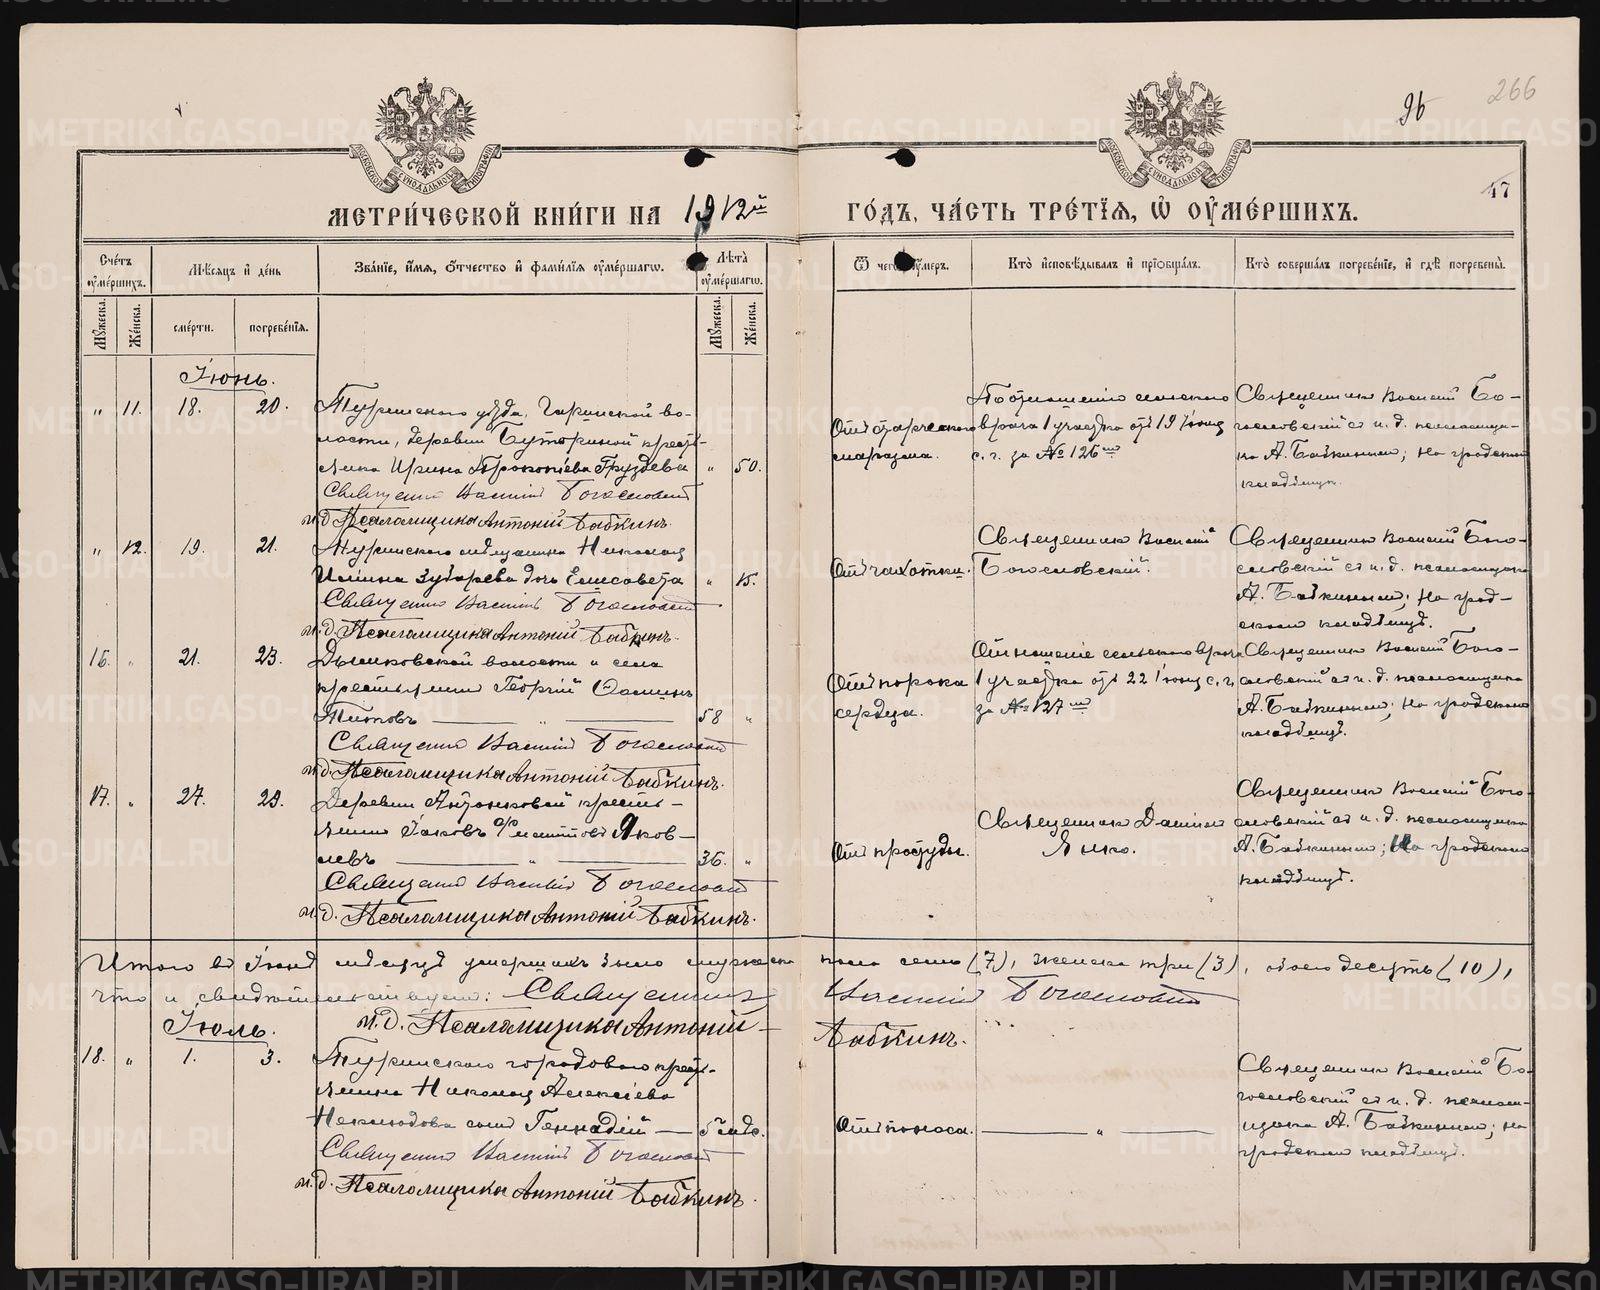 266
96
47
МЕТРИ́ЧЕСКОЙ КНИ́ГИ НА 1912й ГО́ДЪ, ЧА́СТЬ ТРЕ́ТЇѦ, Ѽ ОУ҆МЕ́РШИХЪ.
МОСКОВСКОЙ СѴНОДАЛЬНОЙ ТИПОГРАФІИ
МОСКОВСКОЙ СѴНОДАЛЬНОЙ ТИПОГРАФІИ
Сче́тъ оу҆ме́ршихъ.
Мѣ́сѧцъ и҆ де́нь
Зва́нїе, и҆́мѧ, ѻ҆́тчество и҆ фами́лїѧ оу҆ме́ршагѡ.
Лѣ́та оу҆ме́ршагѡ.
Ѿ чегѡ̀ оу҆́меръ.
Кто̀ и҆сповѣ́дывалъ и҆ прїѡбща́лъ.
Кто̀ соверша́лъ погребе́нїе, и҆ гдѣ̀ погребены̀.
Мꙋ́жеска.
Же́нска.
сме́рти.
погребе́нїѧ.
Мꙋ́жеска.
Же́нска.
Іюнь.
" 11. 18. 20.
Туринскаго уѣзда, Гаринской во-
лости, деревни Буториной кресть-
янка Ирина Прокопіева Груздева " 50.
Священникъ Василій Богословскій
и.д. Псаломщика Антоній Бабкинъ.
Отъ старческаго
маразма.
По отношенію сельскаго
врача 1 участка отъ 19 Іюня
с. г. за № 126м
Священникъ Василій Бо-
гословскій съ и. д. псаломщи-
ка А. Бабкинымъ; на градском
кладбищѣ.
" 12. 19. 21.
Туринскаго мѣщанина Николая
Зубарева дочь Елисавета " 15.
Священникъ Василій Богословскій
и.д. Псаломщика Антоній Бабкинъ.
Отъ чахотки.
Священникъ Василій
Богословскій.
Священникъ Василій Бого-
словскій съ и. д. псаломщика
А. Бабкинымъ; на град-
ском кладбищѣ.
16. " 21. 23.
Дымковской волости и села
крестьянинъ Георгій
Титовъ — " — 58 "
Священникъ Василій Богословскій
и.д. Псаломщика Антоній Бабкинъ.
Отъ порока
сердца.
Отношеніе сельскаго врача
1 участка отъ 22 Іюня с. г.
за № 127м
Священникъ Василій Бого-
словскій съ и. д. псаломщика
А. Бабкинымъ; на градском
кладбищѣ.
17. " 27. 29.
Деревни кресть-
янинъ Іаковъ Яков-
левъ — " — 36. "
Священникъ Василій Богословскій
и.д. Псаломщика Антоній Бабкинъ.
Отъ простуды.
Священник Даніилъ
Янко.
Священникъ Василій Бого-
словскій съ и. д. псаломщика
А. Бабкинымъ; На градском
кладбищѣ.
Итого въ Іюнѣ мѣсяцѣ умершихъ было мужеска пола семь (7), женска три (3), обоего десять (10),
что и свидѣтельствуемъ: Священникъ Василій Богословскій
и.д. Псаломщика Антоній Бабкинъ.
Іюль.
18. " 1. 3.
Туринскаго городоваго кресть-
янина Николая Алексіева
Неклюдова сынъ Геннадій — 5 мѣс.
Священникъ Василій Богословскій
и.д. Псаломщика Антоній Бабкинъ.
Отъ поноса.
— " —
Священникъ Василій Бо-
гословскій съ и. д. псалом-
щика А. Бабкинымъ; на
градском кладбищѣ.
METRIKI.GASO-URAL.RU